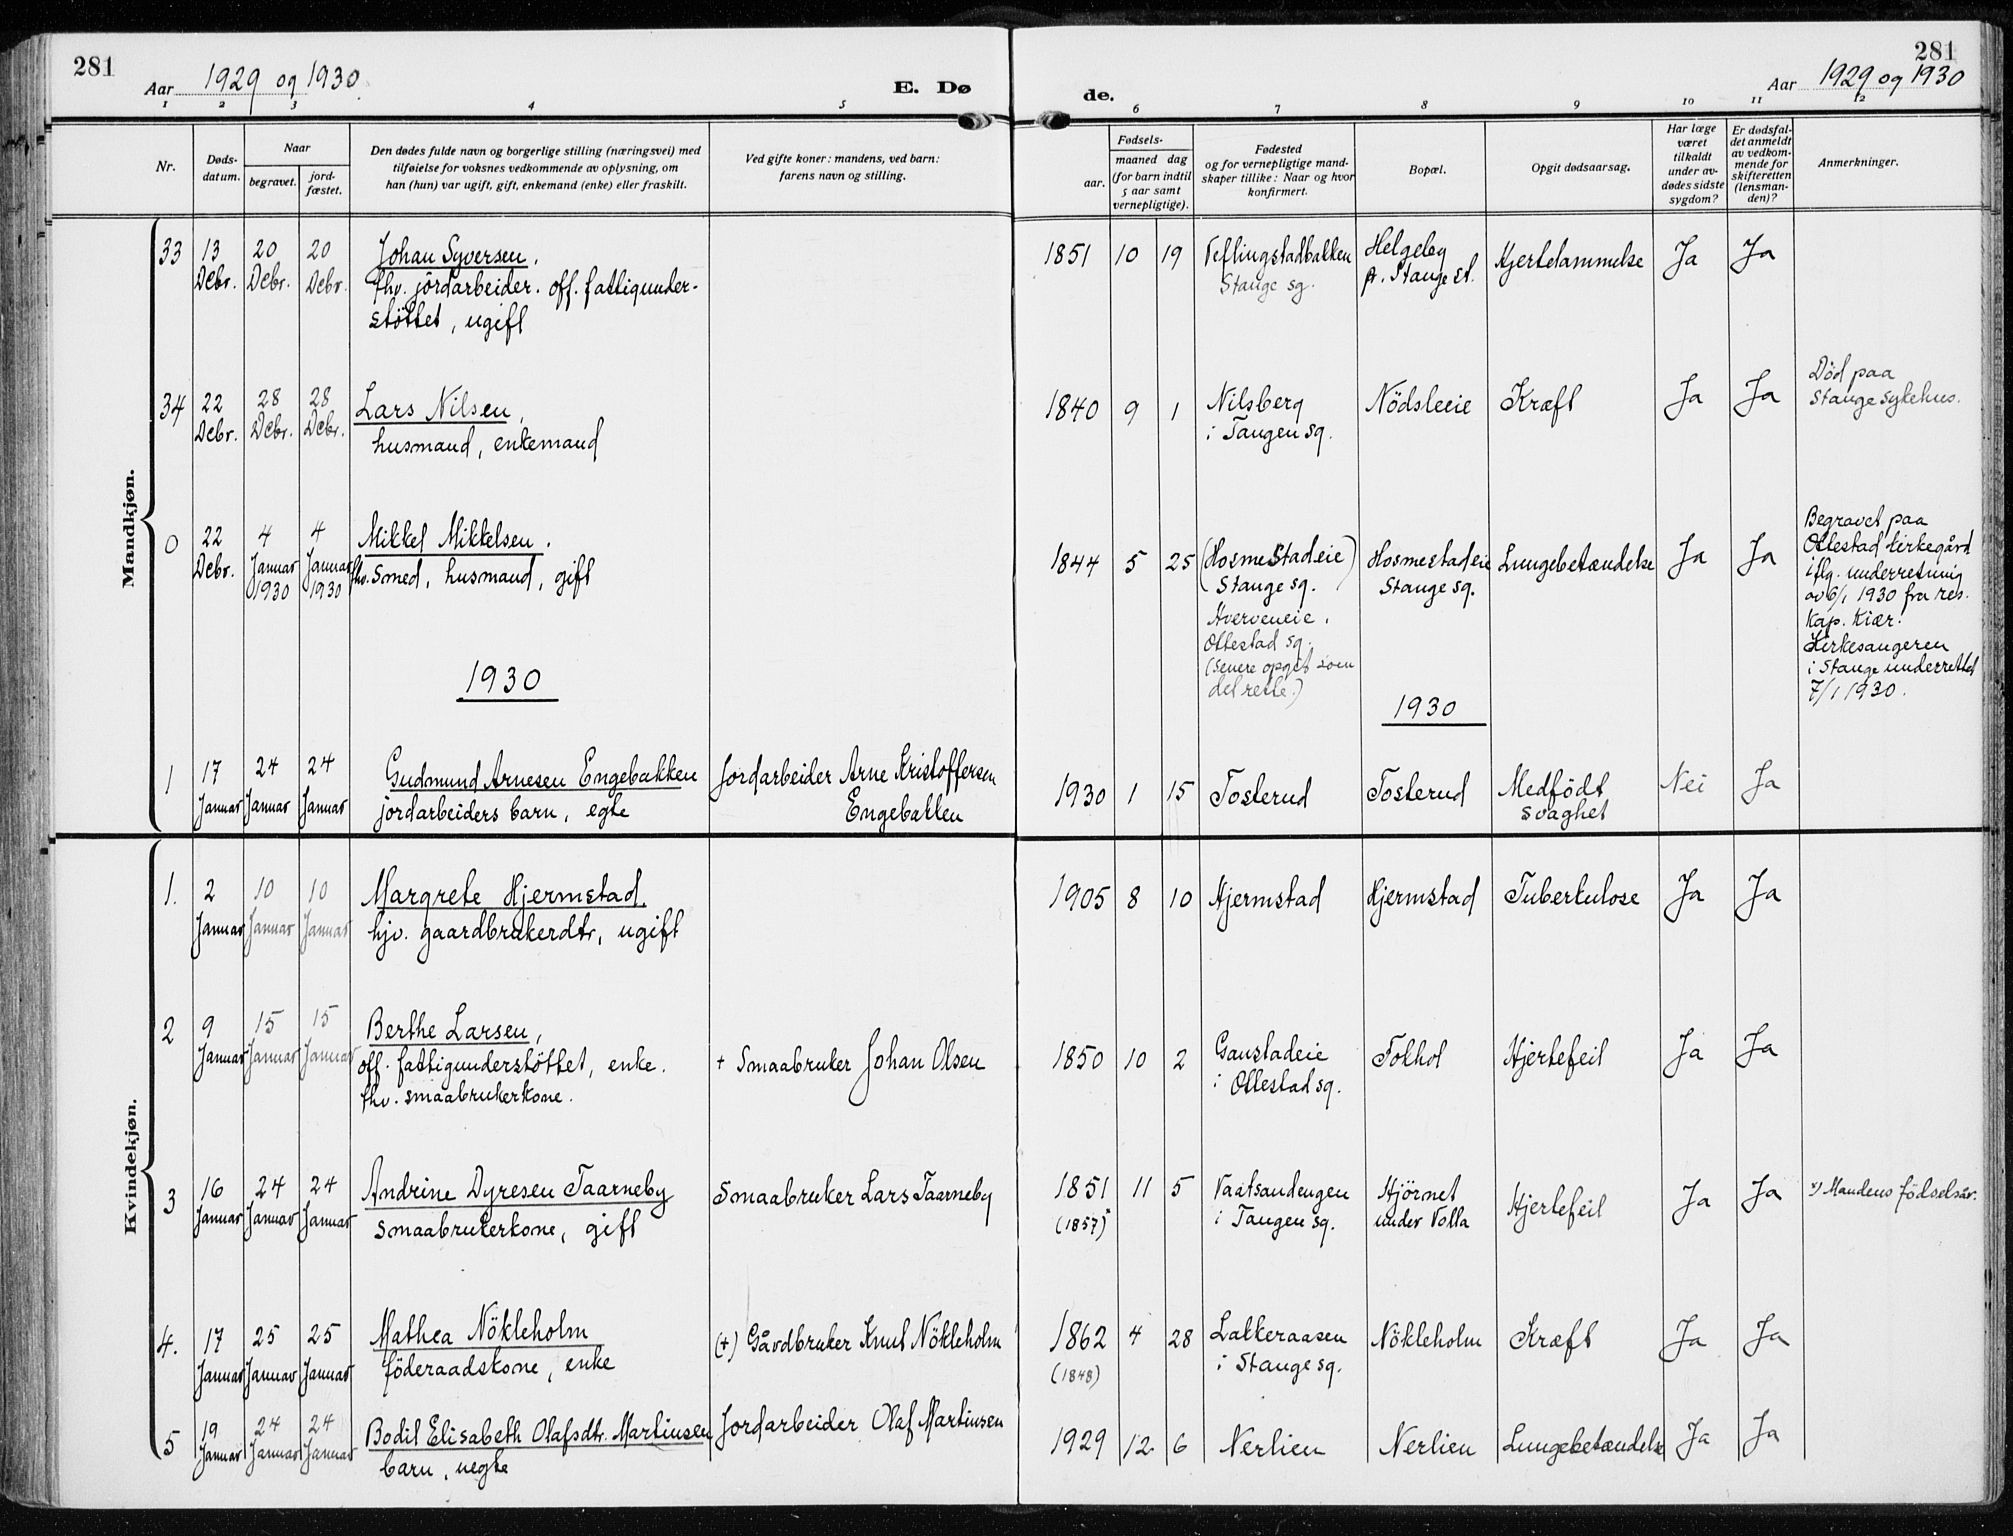 281
Aar 1929 og 1930
E. Dø
de.
Aar 1929 og 1930
281
1 2 3 4 5 6 7 8 9 10 11 12
Nr.
Døds-
datum.
Naar
begravet.
jord-
fæstet.
Den dødes fulde navn og borgerlige stilling (næringsvei) med
tilføielse for voksnes vedkommende av oplysning, om
han (hun) var ugift, gift, enkemand (enke) eller fraskilt.
Ved gifte koner: mandens, ved barn:
farens navn og stilling.
Fødsels-
aar.
maaned dag
(for barn indtil
5 aar samt
vernepligtige).
Fødested
og for vernepligtige mand-
skaper tillike: Naar og hvor
konfirmert.
Bopæl.
Opgit dødsaarsag.
Har læge
været
tilkaldt
under av-
dødes sidste
sygdom?
Er dødsfal-
det anmeldt
av vedkom-
mende for
skifteretten
(lensman-
den)?
Anmerkninger.
Mandkjøn.
33 13 Debr. 20 Debr. 20 Debr.
Johan Syversen,
fhv. jordarbeider. off. fattigunder-
støttet, ugift
1851 10 19
Stange sg.
Helgeby
p. Stange st.
Hjertelammelse
Ja Ja
34 22 Debr. 28 Debr. 28 Debr.
Lars Nilsen,
husmand, enkemand
1840 9 1
Nilsberg
i Tangen sg.
Nödsleeie
Kræft
Ja Ja
Död paa
Stange sykehus.
0 22 Debr. 4 Januar 1930 4 Januar 1930
Mikkel Mikkelsen.
fhv. Smed, husmand, gift
1844 5 25
(Hosmestadeie)
Stange sg.
Hverveneie,
Ottestad sg.
(senere opgit som
det rette.)
Hosmestadeie
Stange sg.
Lungebetændelse
Ja Ja
Begravet paa
Ottestad kirkegård
iflg. underretning
av 6/1 1930 fra res.
kap. Kiær.
Kirkesangeren
i Stange underrettet
7/1 1930.
1930
1930
1 17 Januar 24 Januar 24 Januar
Gudmund Arnesen Engebakken
jordarbeiders barn, egte
Jordarbeider Arne Kristoffersen
Engebakken
1930 1 15
Tosterud
Tosterud
Medfödt
svaghet
Nei Ja
Kvindekjøn.
1. 2 Januar 10 Januar 10 Januar
Margrete Hjermstad.
hjv. gaardbrukerdtr, ugift
1905 8 10
Hjermstad
Hjermstad
Tuberkulose
Ja Ja
2 9 Januar 15 Januar 15 Januar
Berthe Larsen,
off. fattigunderstöttet, enke.
fhv. smaabrukerkone.
+ Smaabruker Johan Olsen
1850 10 2
Gaustadeie
i Ottestad sg.
Tokhol
Hjertefeil
Ja Ja
3 16 Januar 24 Januar 24 Januar
Andrine Dyresen Taarneby
smaabrukerkone, gift
Smaabruker Lars Taarneby
1851 11 5
(1857)x
Vaatsandengen
i Tangen sg.
Hjörnet
under Volla
Hjertefeil
Ja Ja
x) Mandens födselsår.
4. 17 Januar 25 Januar 25 Januar
Mathea Nökleholm
föderaadskone, enke
(+) Gårdbruker Knut Nökleholm
1862 4 28
(1848)
Lakkeraasen
i Stange sg.
Nökleholm
Kræft
Ja Ja
5 19 Januar 24 Januar 24 Januar
Bodil Elisabeth Olafsdtr. Martinsen
barn, uegte
Jordarbeider Olaf Martinsen
1929 12 6
Nerlien
Nerlien
Lungebetændelse
Ja Ja